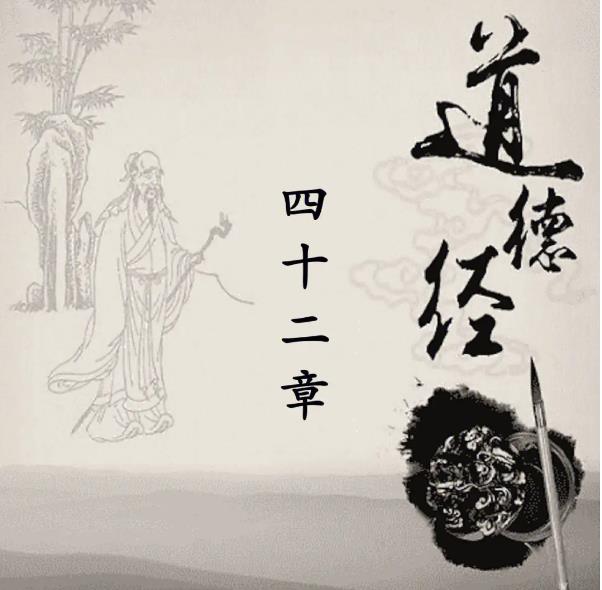 道德经
四十二章